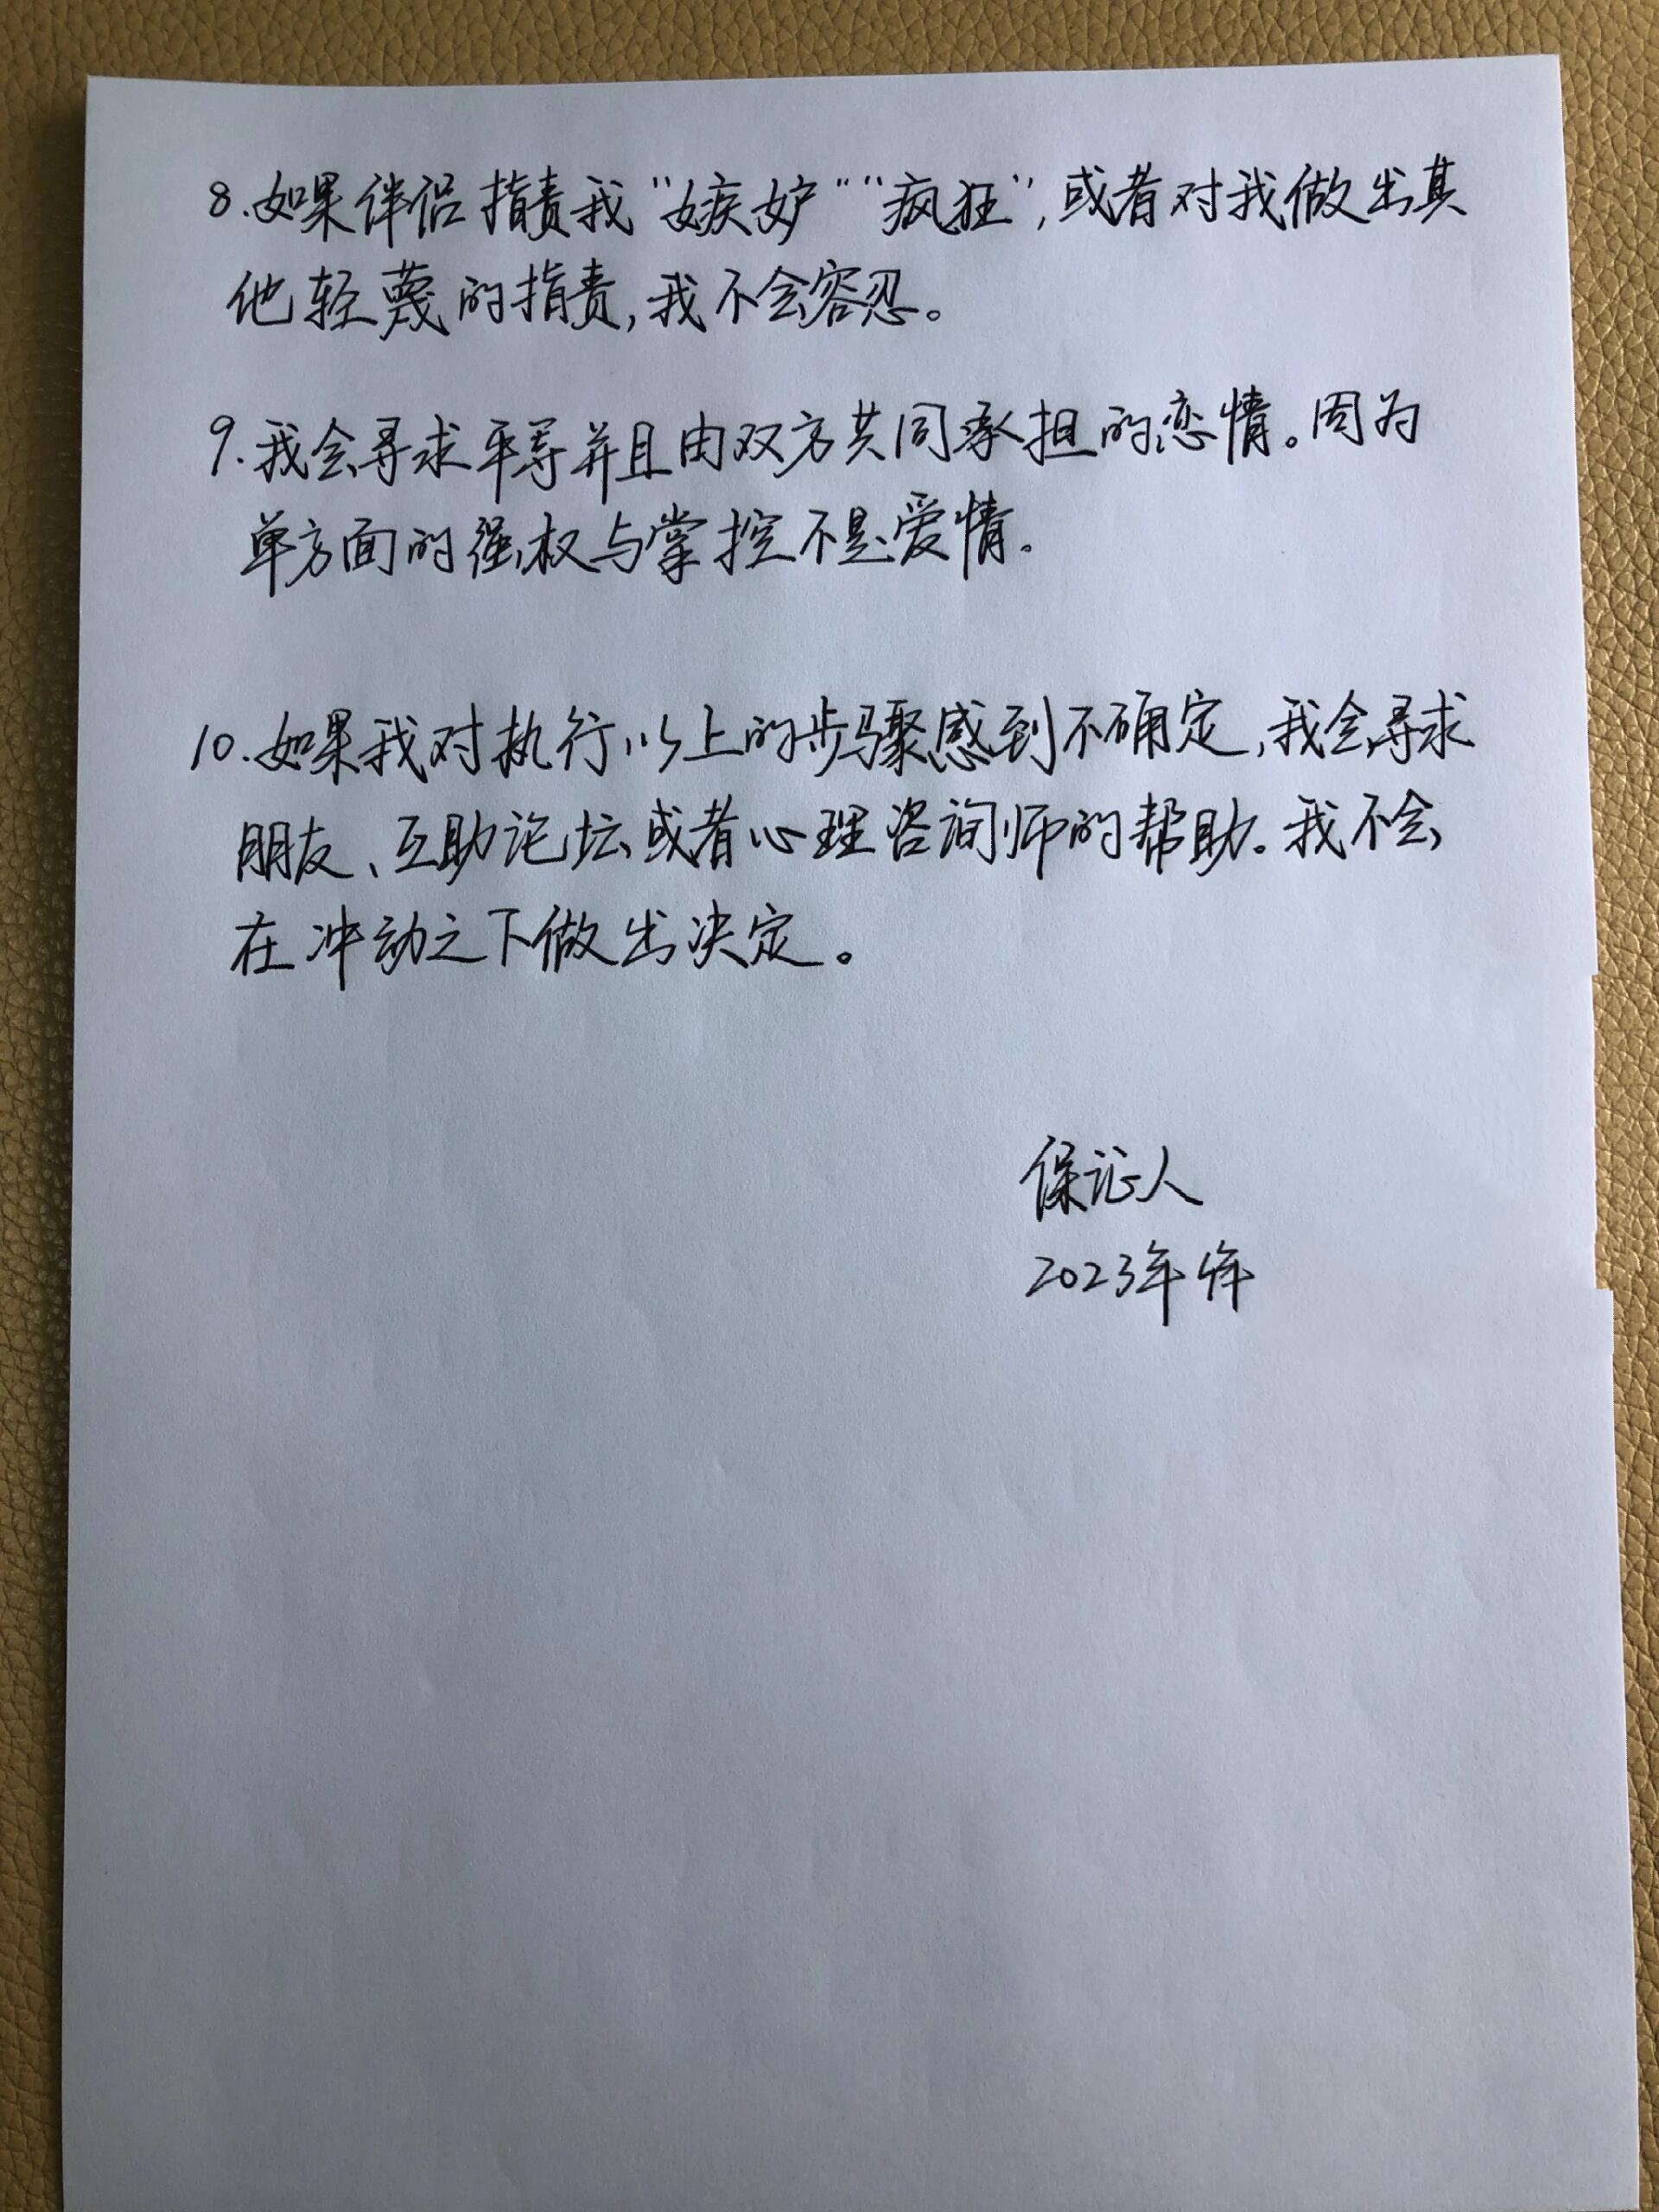 8.如果伴侣指责我“嫉妒”“疯狂”,或者对我做出其
他轻蔑的指责,我不会容忍。
9.我会寻求平等并且由双方共同承担的恋情。因为
单方面的强权与掌控不是爱情。
10.如果我对执行以上的步骤感到不确定,我会寻求
朋友、互助论坛或者心理咨询师的帮助。我不会
在冲动之下做出决定。
保证人
2023年